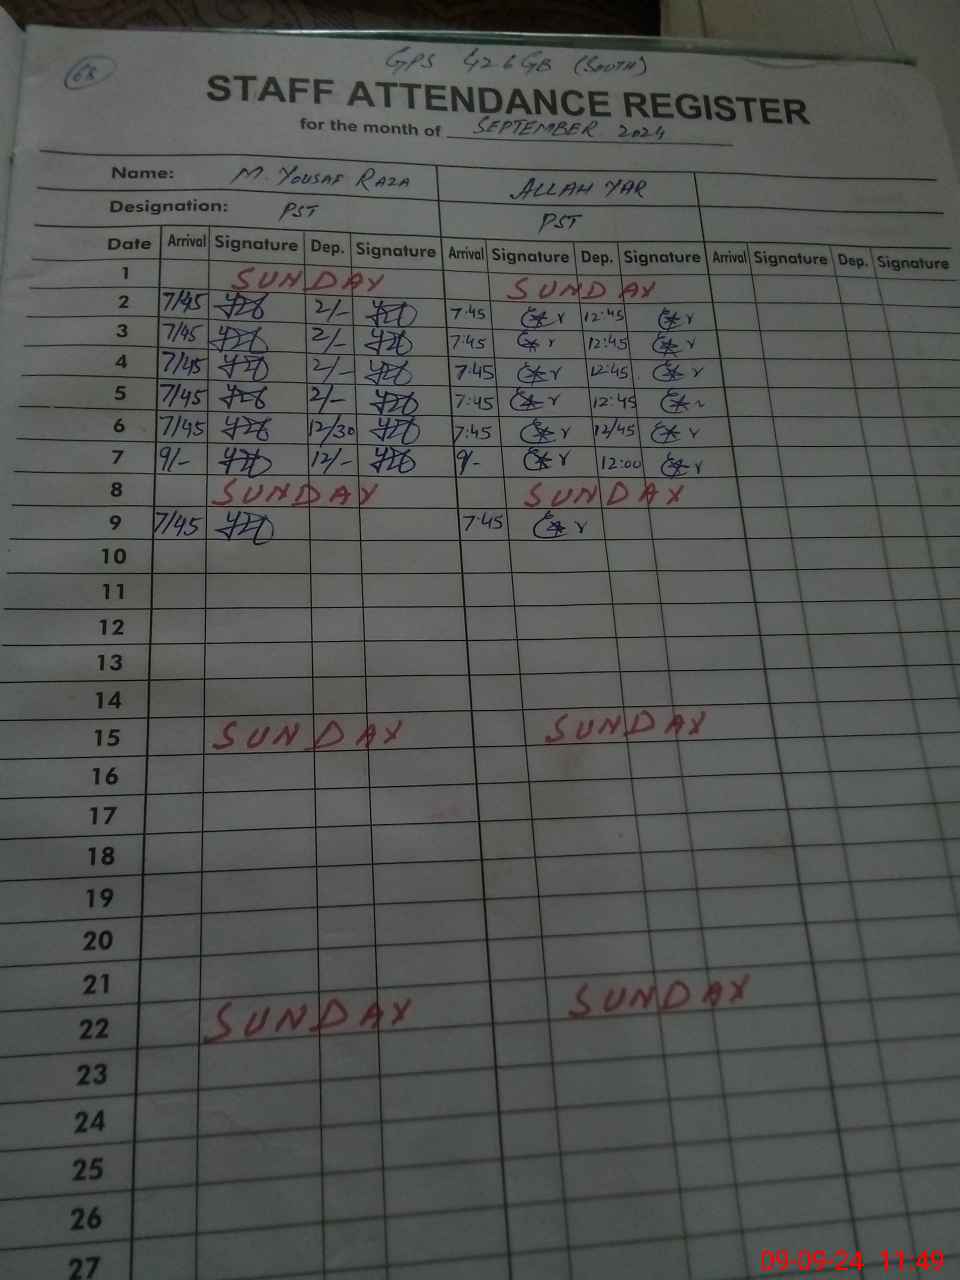 68
GPS 426 GB (SOUTH)
STAFF ATTENDANCE REGISTER
for the month of SEPTEMBER 2024
Name: M. YOUSAF RAZA ALLAH YAR
Designation: PST PST
Date Arrival Signature Dep. Signature Arrival Signature Dep. Signature Arrival Signature Dep. Signature
1 SUNDAY SUNDAY
2 7/45 2/- 7:45 12:45
3 7/45 2/- 7:45 12:45
4 7/45 2/- 7:45 12:45
5 7/45 2/- 7:45 12:45
6 7/45 12/30 7:45 12/45
7 9/- 12/- 9/- 12:00
8 SUNDAY SUNDAY
9 7/45 7:45
10
11
12
13
14
15 SUNDAY SUNDAY
16
17
18
19
20
21
22 SUNDAY SUNDAY
23
24
25
26
27
09-09-24 11:49